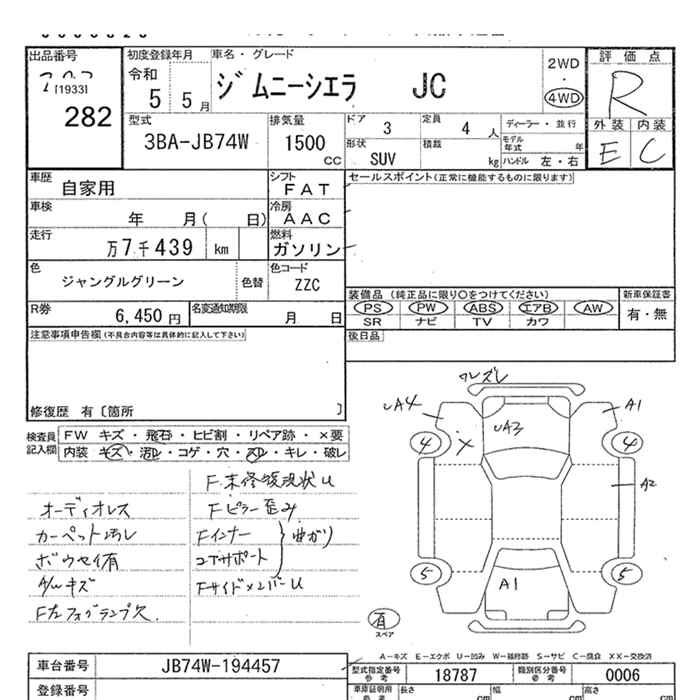 出品番号 初度登録年月 車名・グレード 評価点
[1933]
282
令和
5 5月
ジムニーシエラ JC
2WD
・
4WD
R
型式
3BA-JB74W
排気量
1500
cc
ドア 3
定員 4 人
ディーラー・並行
形状 SUV
積載 kg
モデル年式 年
ハンドル 左・右
外装 内装
E C
車歴 自家用
シフト FAT
車検 年 月( 日)
冷房 AAC
走行 万7千439 km
燃料 ガソリン
色 ジャングルグリーン 色替
色コード ZZC
R券 6,450円
名変通知期限 月 日
セールスポイント(正常に機能するものに限ります)
装備品(純正品に限り○をつけてください)
新車保証書
PS PW ABS エアB AW
有・無
SR ナビ TV カワ
後日品
注意事項申告欄(不具合内容等は具体的に記入して下さい)
修復歴 有〔箇所 〕
検査員記入欄
FW キズ・飛石・ヒビ割・リペア跡・×要
内装 キズ・汚レ・コゲ・穴・スレ・キレ・破レ
F未修復現状U
オーディオレス
Fピラー歪み
カーペット汚レ
Fインナー
コアサポート
曲がり
ボウセイ有
A/Wキズ
FサイドメンバーU
F左フォグランプ欠
ワレズレ
UA4
UA3
A1
X
4
4
A2
5
5
A1
有
スペア
A-キズ E-エクボ U-凹み W-補修跡 S-サビ C-腐食 XX-交換済
車台番号 JB74W-194457
型式指定番号 参考 18787
類別区分番号 参考 0006
登録番号
車庫証明用 参考
長さ cm
幅 cm
高さ cm